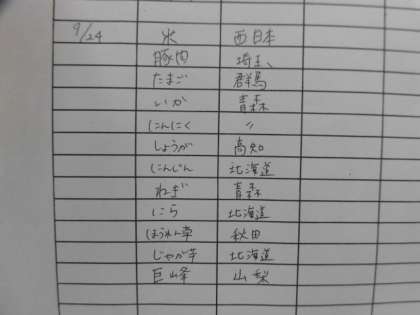 9/24 米 西日本
豚肉 埼玉、
たまご 群馬
いか 青森
にんにく 〃
しょうが 高知
にんじん 北海道
ねぎ 青森
にら 北海道
ほうれん草 秋田
じゃが芋 北海道
巨峰 山梨